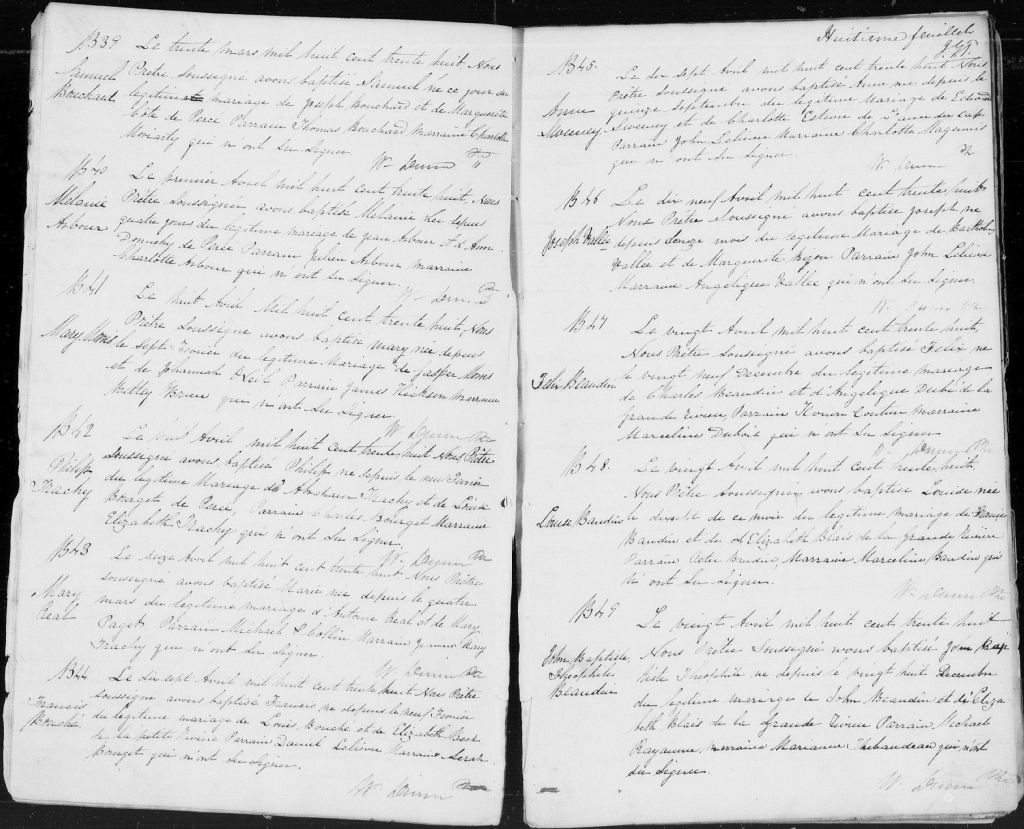 B39 Le trente mars mil huit cent trente huit Nous
Samuel Prêtre Soussigné avons baptisé Samuel né ce jour du
Bouchard legitime mariage de Joseph Bouchard et de Marguerite
Cote de Percé Parrain Thomas Bouchard marraine Charlotte
Moriarty qui n ont Su Signer.
W. Dunn Ptr
B40 Le premier Avril mil huit cent trente huit, Nous
Melanie Prêtre Soussignée avons baptisé Melanie née depuis
Arbour quatre jours du legitime mariage de Jean Arbour et d Ann
Donnehy de Percé Parrain Julien Arbour marraine
Charlotte Arbour qui n ont Su Signer.
W. Dunn Ptr
B41 Le huit Avril Mil huit cent trente huit, Nous
Prêtre Soussigné avons baptisé Mary née depuis
Mary le Sept Fevrier du legitime Mariage de Jasper
et de Johannah Parrain James marraine
qui n'ont Su Signer.
W Dunn Ptr
B42 Le Avril mil huit cent trente huit Nous Prêtre
Philip Soussigné avons baptisé Philip né depuis le
Trachy du legitime Mariage de Abraham Trachy et de
Bourget de Percé, Parrain Charles Bourget Marraine
Elizabeth Trachy qui n ont Su Signer.
W. Dunn Ptr
B43 Le Seize Avril mil huit cent trente huit Nous Prêtre
Soussigné avons baptisé Marie née depuis le quatre
Mary mars du legitime mariage d'Antoine Réal et de Mary
Real Paget, Parrain Michael Marraine Mary
Trachy qui n ont Su Signer.
W. Dunn Ptr
B44 Le dix sept Avril mil huit cent trente huit Nous Prêtre
Francis Soussigné avons baptisé Francis né depuis le neuf Fevrier
Bouché du legitime mariage de Louis Bouché et de Elizabeth
de la petite Riviere Parrain Daniel Lelievre Marraine Sarah
Bourget qui n ont Su Signer.
W Dunn Ptr
Huitieme feuillet
B45 Le dix sept Avril mil huit cent trente huit Nous
Prêtre Soussigné avons baptisé Anne née depuis le
Anne quinze Septembre du legitime Mariage de Edward
Sweeney Sweeney et de Charlotte de L'anse du Cap
Parrain John Lelievre Marraine Charlotte
qui n ont Su Signer.
W. Dunn Ptr
B46 Le dix neuf Avril mil huit cent trente huit
Nous Prêtre Soussigné avons baptisé Joseph né
Joseph Vallée depuis douze mois du legitime Mariage de
Vallée et de Marguerite Parrain John Lelievre
Marraine Angelique Vallée qui n'ont Su Signer.
W. Dunn Ptr
B47 Le vingt Avril mil huit cent trente huit
Nous Prêtre Soussigné avons baptisé Felix né
Felix Beaudin le vingt neuf Decembre du legitime mariage
de Charles Beaudin et d'Angelique Dubé de la
Grande riviere Parrain Marraine
Marceline Dubois qui n ont Su Signer
W. Dunn Ptr
B48 Le vingt Avril mil huit cent trente huit,
Nous Prêtre Soussigné avons baptisé Louise née
Louise Baudin le de ce mois du legitime mariage de
Baudin et de Elizabeth Blais de la Grande Riviere
Parrain Peter Baudin Marraine Marceline Baudin qui
n' ont Su Signer.
W. Dunn Ptr
B49 Le vingt Avril mil huit cent trente huit
John Baptiste Nous Prêtre Soussigné avons baptisé John Bap
Theophile tiste Theophile né depuis le vingt huit Decembre
Beaudin du legitime mariage de John Beaudin et de Eliza
beth Blais de la Grande Riviere Parrain Michael
marraine Marianne Thibaudeau qui n'ont
Su Signer.
W. Dunn Ptr